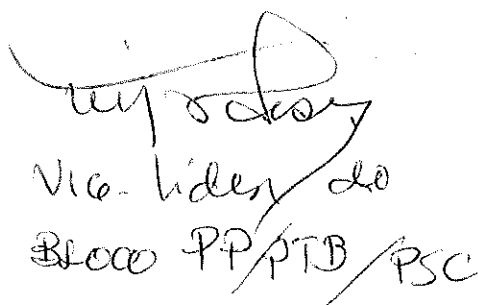 Vice-líder do
BLOCO PP/PTB/PSC